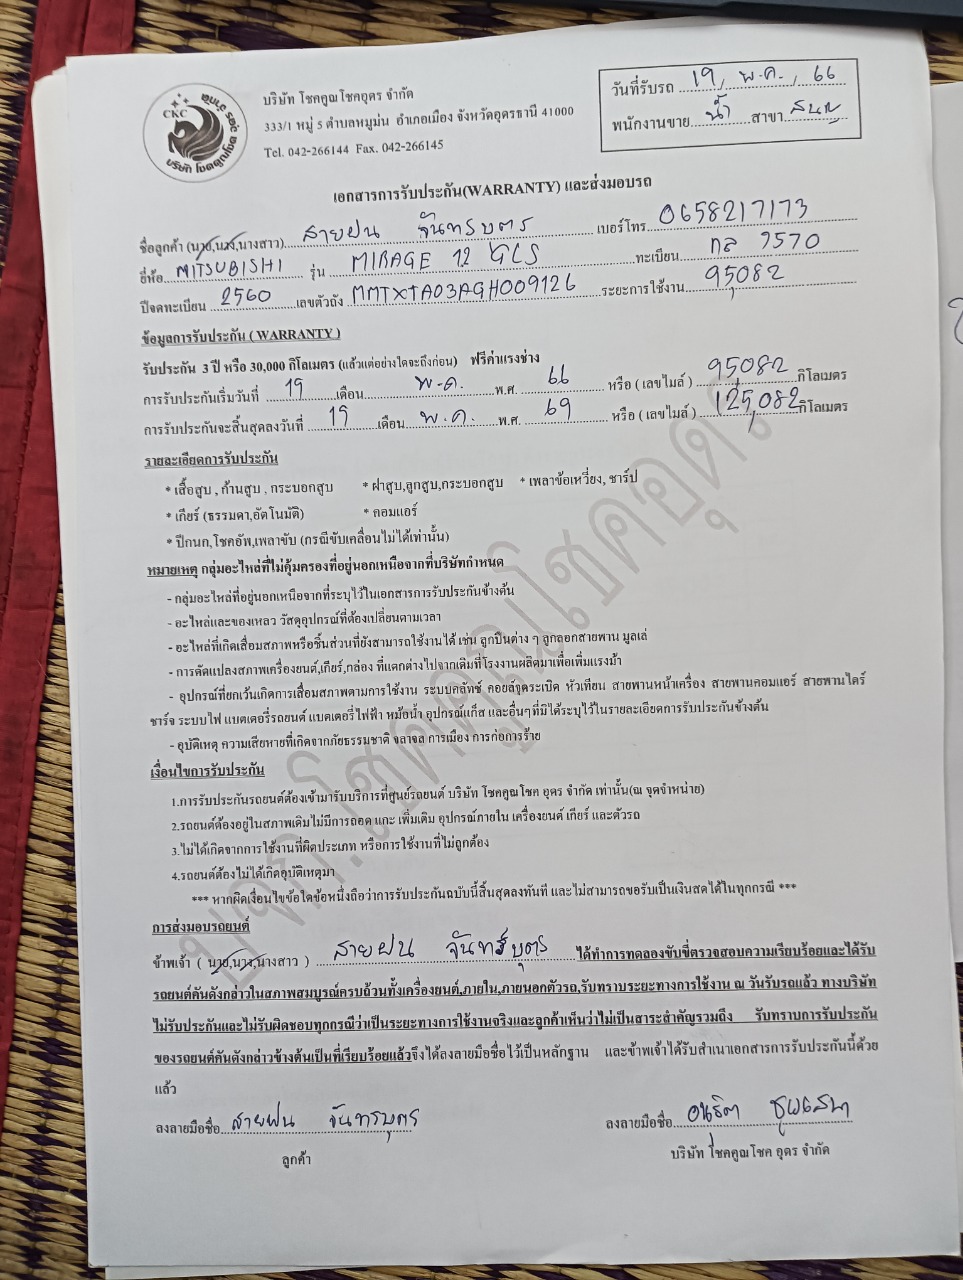 CKC
บริษัท โชคคูณโชค อุดร จำกัด
บริษัท โชคคูณโชคอุดร จำกัด
333/1 หมู่ 5 ตำบลหมูม่น อำเภอเมือง จังหวัดอุดรธานี 41000
Tel. 042-266144 Fax. 042-266145
วันที่รับรถ 19 / พ.ค. / 66
พนักงานขาย น้ำ สาขา
เอกสารการรับประกัน(WARRANTY) และส่งมอบรถ
ชื่อลูกค้า (นาย,นาง,นางสาว) สายฝน จันทรบุตร เบอร์โทร 0658217173
ยี่ห้อ MITSUBISHI รุ่น MIRAGE 1.2 GLS ทะเบียน กล 9570
ปีจดทะเบียน 2560 เลขตัวถัง MMTXTA03AGH009126 ระยะการใช้งาน 95,082
ข้อมูลการรับประกัน ( WARRANTY )
รับประกัน 3 ปี หรือ 30,000 กิโลเมตร (แล้วแต่อย่างใดจะถึงก่อน) ฟรีค่าแรงช่าง
การรับประกันเริ่มวันที่ 19 เดือน พ.ค. พ.ศ. 66 หรือ ( เลขไมล์ ) 95,082 กิโลเมตร
การรับประกันจะสิ้นสุดลงวันที่ 19 เดือน พ.ค. พ.ศ. 69 หรือ ( เลขไมล์ ) 125,082 กิโลเมตร
รายละเอียดการรับประกัน
* เสื้อสูบ , ก้านสูบ , กระบอกสูบ * ฝาสูบ,ลูกสูบ,กระบอกสูบ * เพลาข้อเหวี่ยง, ชาร์ป
* เกียร์ (ธรรมดา,อัตโนมัติ) * คอมแอร์
* ปีกนก,โชคอัพ,เพลาขับ (กรณีขับเคลื่อนไม่ได้เท่านั้น)
หมายเหตุ กลุ่มอะไหล่ที่ไม่คุ้มครองที่อยู่นอกเหนือจากที่บริษัทกำหนด
- กลุ่มอะไหล่ที่อยู่นอกเหนือจากที่ระบุไว้ในเอกสารการรับประกันข้างต้น
- อะไหล่และของเหลว วัสดุอุปกรณ์ที่ต้องเปลี่ยนตามเวลา
- อะไหล่ที่เกิดเสื่อมสภาพหรือชิ้นส่วนที่ยังสามารถใช้งานได้ เช่น ลูกปืนต่าง ๆ ลูกลอกสายพาน มูเล่
- การดัดแปลงสภาพเครื่องยนต์,เกียร์,กล่อง ที่แตกต่างไปจากเดิมที่โรงงานผลิตมาเพื่อเพิ่มแรงม้า
- อุปกรณ์ที่ยกเว้นเกิดการเสื่อมสภาพตามการใช้งาน ระบบคลัทช์ คอยล์จุดระเบิด หัวเทียน สายพานหน้าเครื่อง สายพานคอมแอร์ สายพานไดร์
ชาร์จ ระบบไฟ แบตเตอรี่รถยนต์ แบตเตอรี่ไฟฟ้า หม้อน้ำ อุปกรณ์แก๊ส และอื่นๆที่มิได้ระบุไว้ในรายละเอียดการรับประกันข้างต้น
- อุบัติเหตุ ความเสียหายที่เกิดจากภัยธรรมชาติ จลาจล การเมือง การก่อการร้าย
เงื่อนไขการรับประกัน
1.การรับประกันรถยนต์ต้องเข้ามารับบริการที่ศูนย์รถยนต์ บริษัท โชคคูณโชค อุดร จำกัด เท่านั้น(ณ จุดจำหน่าย)
2.รถยนต์ต้องอยู่ในสภาพเดิมไม่มีการถอด แกะ เพิ่มเติม อุปกรณ์ภายใน เครื่องยนต์ เกียร์ และตัวรถ
3.ไม่ได้เกิดจากการใช้งานที่ผิดประเภท หรือการใช้งานที่ไม่ถูกต้อง
4.รถยนต์ต้องไม่ได้เกิดอุบัติเหตุมา
*** หากผิดเงื่อนไขข้อใดข้อหนึ่งถือว่าการรับประกันฉบับนี้สิ้นสุดลงทันที และไม่สามารถขอรับเป็นเงินสดได้ในทุกกรณี ***
การส่งมอบรถยนต์
ข้าพเจ้า ( นาย,นาง,นางสาว ) สายฝน จันทร์บุตร ได้ทำการทดลองขับขี่ตรวจสอบความเรียบร้อยและได้รับ
รถยนต์คันดังกล่าวในสภาพสมบูรณ์ครบถ้วนทั้งเครื่องยนต์,ภายใน,ภายนอกตัวรถ,รับทราบระยะทางการใช้งาน ณ วันรับรถแล้ว ทางบริษัท
ไม่รับประกันและไม่รับผิดชอบทุกกรณีว่าเป็นระยะทางการใช้งานจริงและลูกค้าเห็นว่าไม่เป็นสาระสำคัญรวมถึง รับทราบการรับประกัน
ของรถยนต์คันดังกล่าวข้างต้นเป็นที่เรียบร้อยแล้วจึงได้ลงลายมือชื่อไว้เป็นหลักฐาน และข้าพเจ้าได้รับสำเนาเอกสารการรับประกันนี้ด้วย
แล้ว
ลงลายมือชื่อ สายฝน จันทรบุตร ลงลายมือชื่อ
ลูกค้า บริษัท โชคคูณโชค อุดร จำกัด